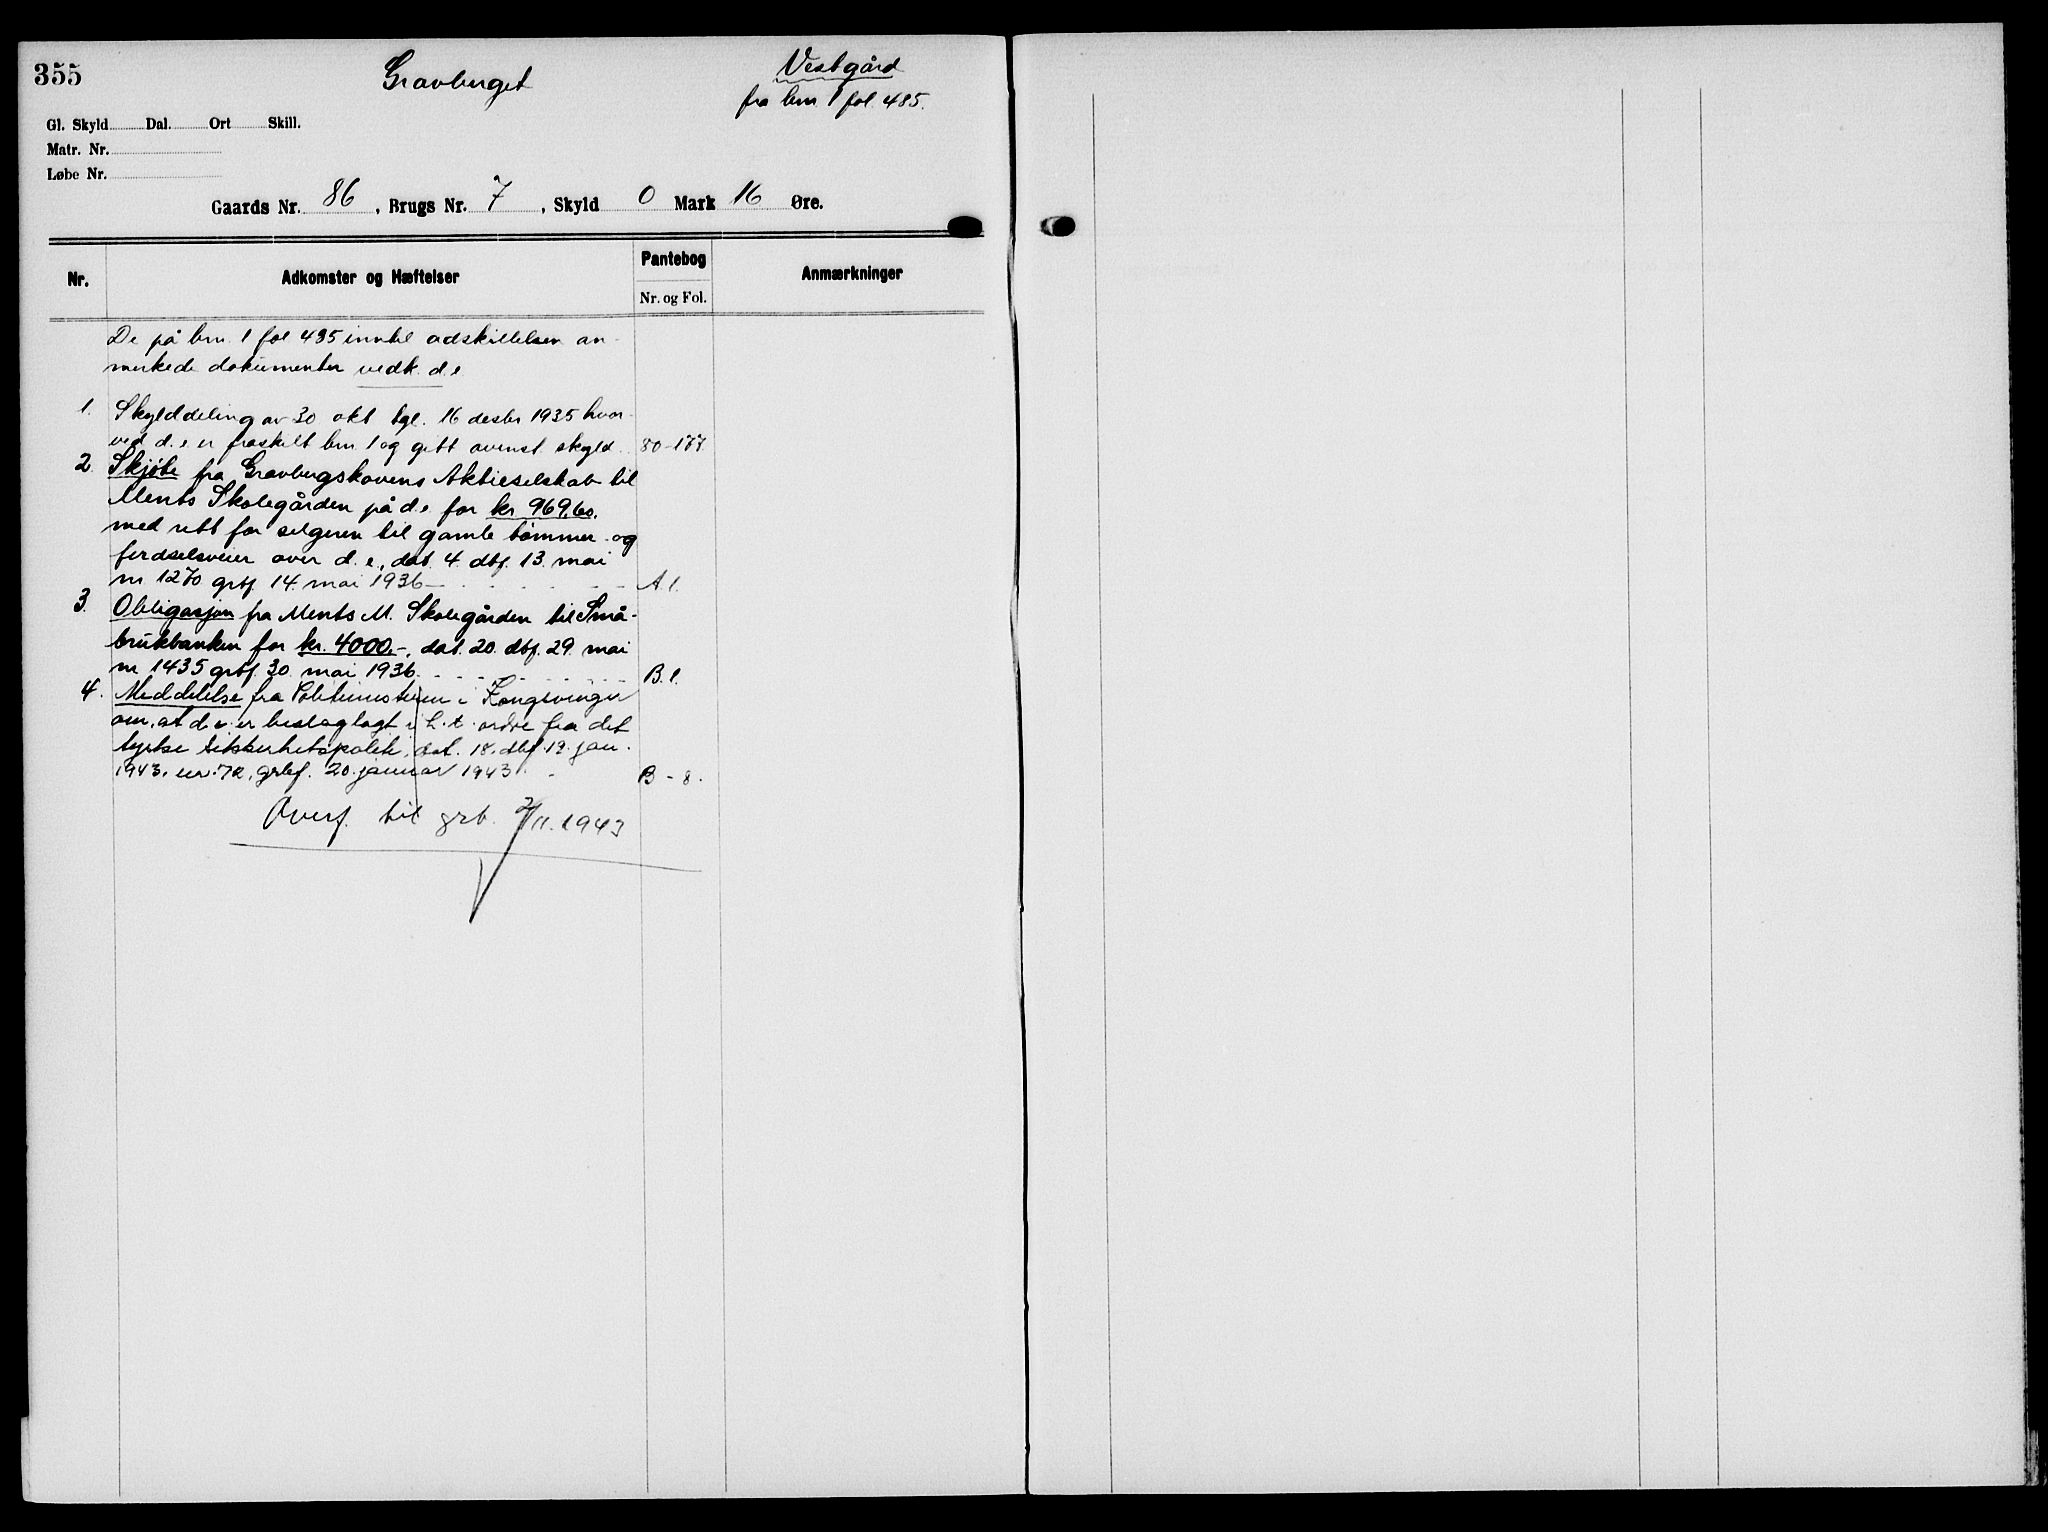 355
Gravberget
Vestgård
fra brn 1 fol. 485.
Gl. Skyld Dal. Ort Skill.
Matr. Nr.
Løbe Nr.
Gaards Nr. 86, Brugs Nr. 7, Skyld 0 Mark 16 Øre.
Nr. Adkomster og Hæftelser Pantebog Anmærkninger
Nr. og Fol.
De på brn. 1 fol 485 inntil adskillelsen an-
merkede dokumenter vedk. d. e
1. Skylddeling av 30 okt tgl. 16 desbr 1935 hvor-
ved d. e er fraskilt brn 1 og gitt ovenst. skyld. 80-177.
2 Skjøte fra Gravbergskovens Aktieselskab til
Ments Skolegården på d. e for kr 969,60.
med rett for selgeren til gamle tømmer- og
ferdselsveier over d. e., dat. 4 dbf. 13. mai
nr 1270 grbf. 14. mai 1936 A 1.
3. Obligasjon fra Ments M. Skolegården til Små-
brukbanken for kr. 4000.-, dat. 20. dbf. 29. mai
nr 1435 grbf. 30. mai 1936 B. 1.
4. Meddelelse fra Politimesteren i Kongsvinger
om, at d. e. er beslaglagt i h. t. ordre fra det
tyske sikkerhetspoliti, dat. 18. dbf. 19. jan.
1943. nr. 72, grbf. 20. januar 1943. B - 8.
Overf. til grb. 2/11. 1943